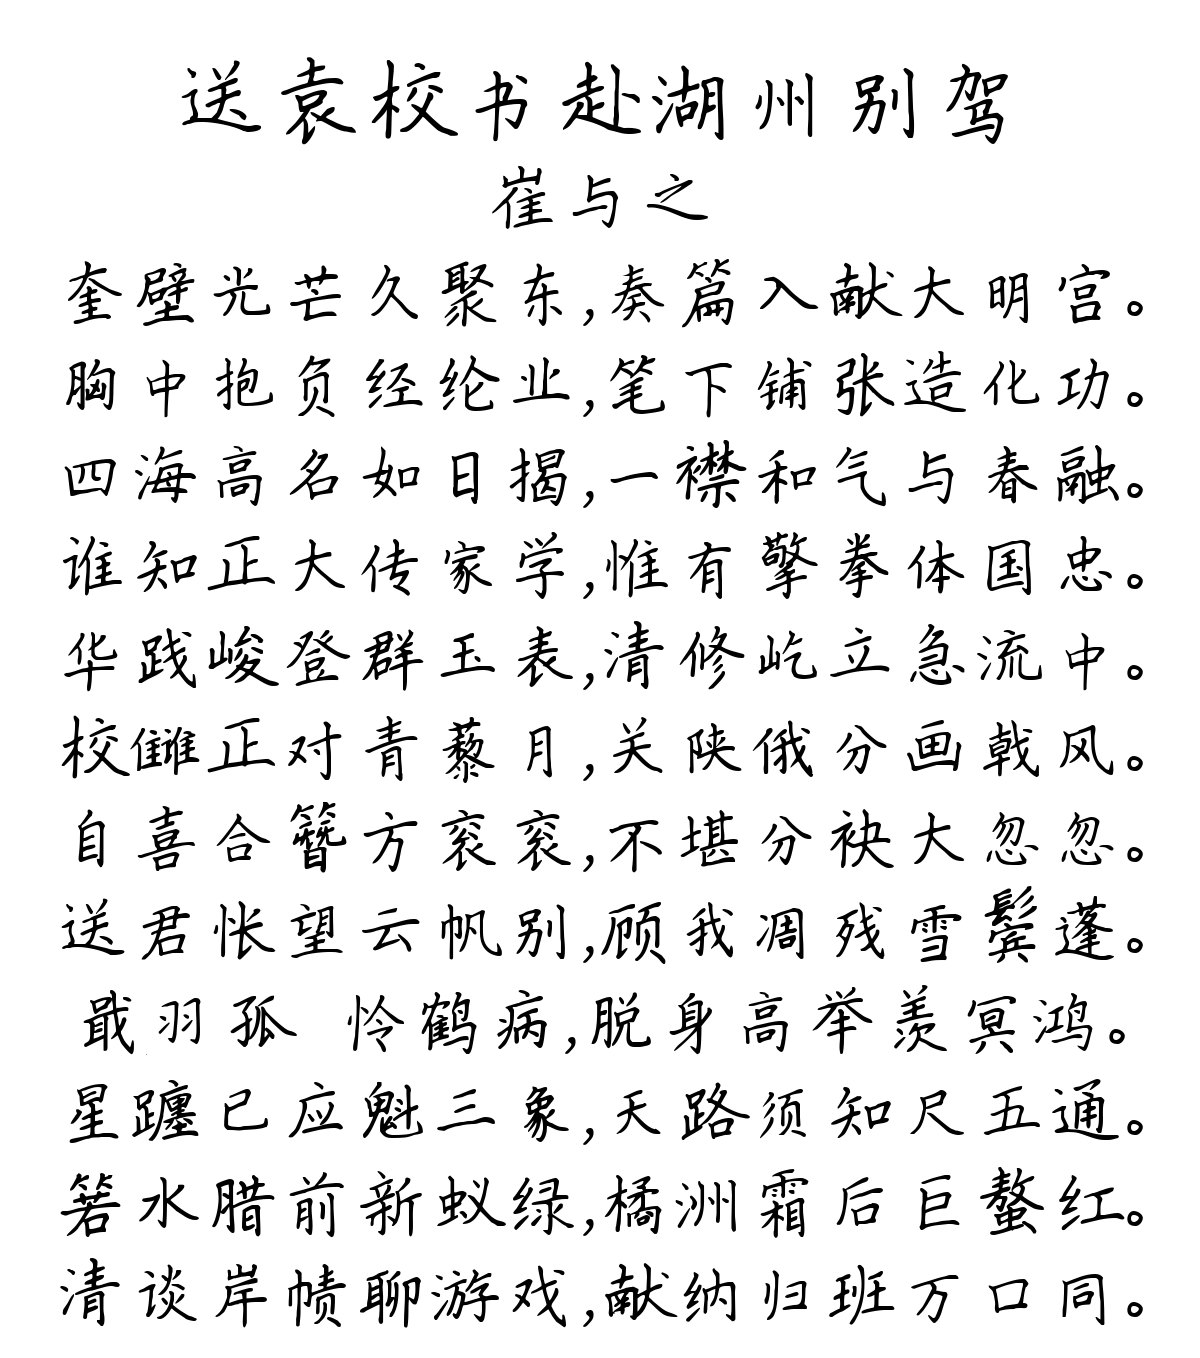 送袁校书赴湖州别驾
崔与之
奎壁光芒久聚东,奏篇入献大明宫。
胸中抱负经纶业,笔下铺张造化功。
四海高名如日揭,一襟和气与春融。
谁知正大传家学,惟有擎拳体国忠。
华践峻登群玉表,清修屹立急流中。
校雠正对青藜月,关陕俄分画戟风。
自喜合簪方衮衮,不堪分袂大忽忽。
送君怅望云帆别,顾我凋残雪鬓蓬。
戢羽孤 怜鹤病,脱身高举羡冥鸿。
星躔已应魁三象,天路须知尺五通。
箬水腊前新蚁绿,橘洲霜后巨螯红。
清谈岸帻聊游戏,献纳归班万口同。